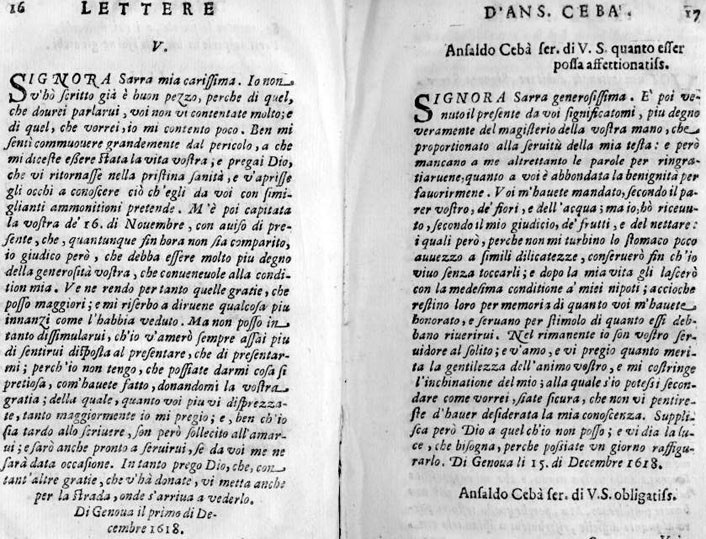 16 LETTERE
V.
SIGNORA Sarra mia carissima. Io non
v'hò scritto già è buon pezzo, perche di quel,
che dourei parlarui, voi non vi contentate molto; e
di quel, che vorrei, io mi contento poco. Ben mi
sentì commuouere grandemente dal pericolo, a che
mi diceste eßere stata la vita vostra; e pregai Dio,
che vi ritornasse nella pristina sanità, e v'aprisse
gli occhi a conoscere ciò ch'egli da voi con simi-
glianti ammonitioni pretende. M'è poi capitata
la vostra de' 16. di Nouembre, con auiso di pre-
sente, che, quantunque fin hora non sia comparito,
io giudico però, che debba essere molto piu degno
della generosità vostra, che conueneuole alla condi-
tion mia. Ve ne rendo per tanto quelle gratie, che
posso maggiori; e mi riserbo a diruene qualcosa piu
innanzi come l'habbia veduto. Ma non posso in
tanto dissimularui, ch'io v'amerò sempre assai piu
di sentirui disposta al presentare, che di presentar-
mi; perch'io non tengo, che possiate darmi cosa sì
pretiosa, com'hauete fatto, donandomi la vostra
gratia; della quale, quanto voi piu vi disprezza-
te, tanto maggiormente io mi pregio; e, ben ch'io
sia tardo allo scriuere, son però sollecito all'amar-
ui; e sarò anche pronto a seruirui, se da voi me ne
sarà data occasione. In tanto prego Dio, che, con
tant'altre gratie, che v'hà donate, vi metta anche
per la strada, onde s'arriua a vederlo.
Di Genoua il primo di De-
cembre 1618.
D'ANS. CEBA'. 17
Ansaldo Cebà ser. di V. S. quanto esser
possa affettionatiss.
SIGNORA Sarra generosissima. E' poi ve-
nuto il presente da voi significatomi, piu degno
veramente del magisterio della vostra mano, che
proportionato alla seruitù della mia testa: e però
mancano a me altrettanto le parole per ringra-
tiaruene, quanto a voi è abbondata la benignità per
fauorirmene. Voi m'hauete mandato, secondo il pa-
rer vostro, de' fiori, e dell'acqua; ma io, hò riceuu-
to, secondo il mio giudicio, de' frutti, e del nettare:
i quali però, perche non mi turbino lo stomaco poco
auuezzo a simili dilicatezze, conseruerò fin ch'io
viuo senza toccarli; e dopo la mia vita gli lascerò
con la medesima conditione a' miei nipoti; accioche
restino loro per memoria di quanto voi m'hauete
honorato, e seruano per stimolo di quanto essi deb-
bano riuerirui. Nel rimanente io son vostro ser-
uidore al solito; e v'amo, e vi pregio quanto meri-
ta la gentilezza dell'animo vostro, e mi costringe
l'inchinatione del mio; alla quale s'io potessi secon-
dare come vorrei, siate sicura, che non vi pentire-
ste d'hauer desiderata la mia conoscenza. Suppli-
sca però Dio a quel ch'io non posso; e vi dia la lu-
ce, che bisogna, perche possiate vn giorno raffigu-
rarlo. Di Genoua li 15. di Decembre 1618.
Ansaldo Cebà ser. di V.S. obligatiss.